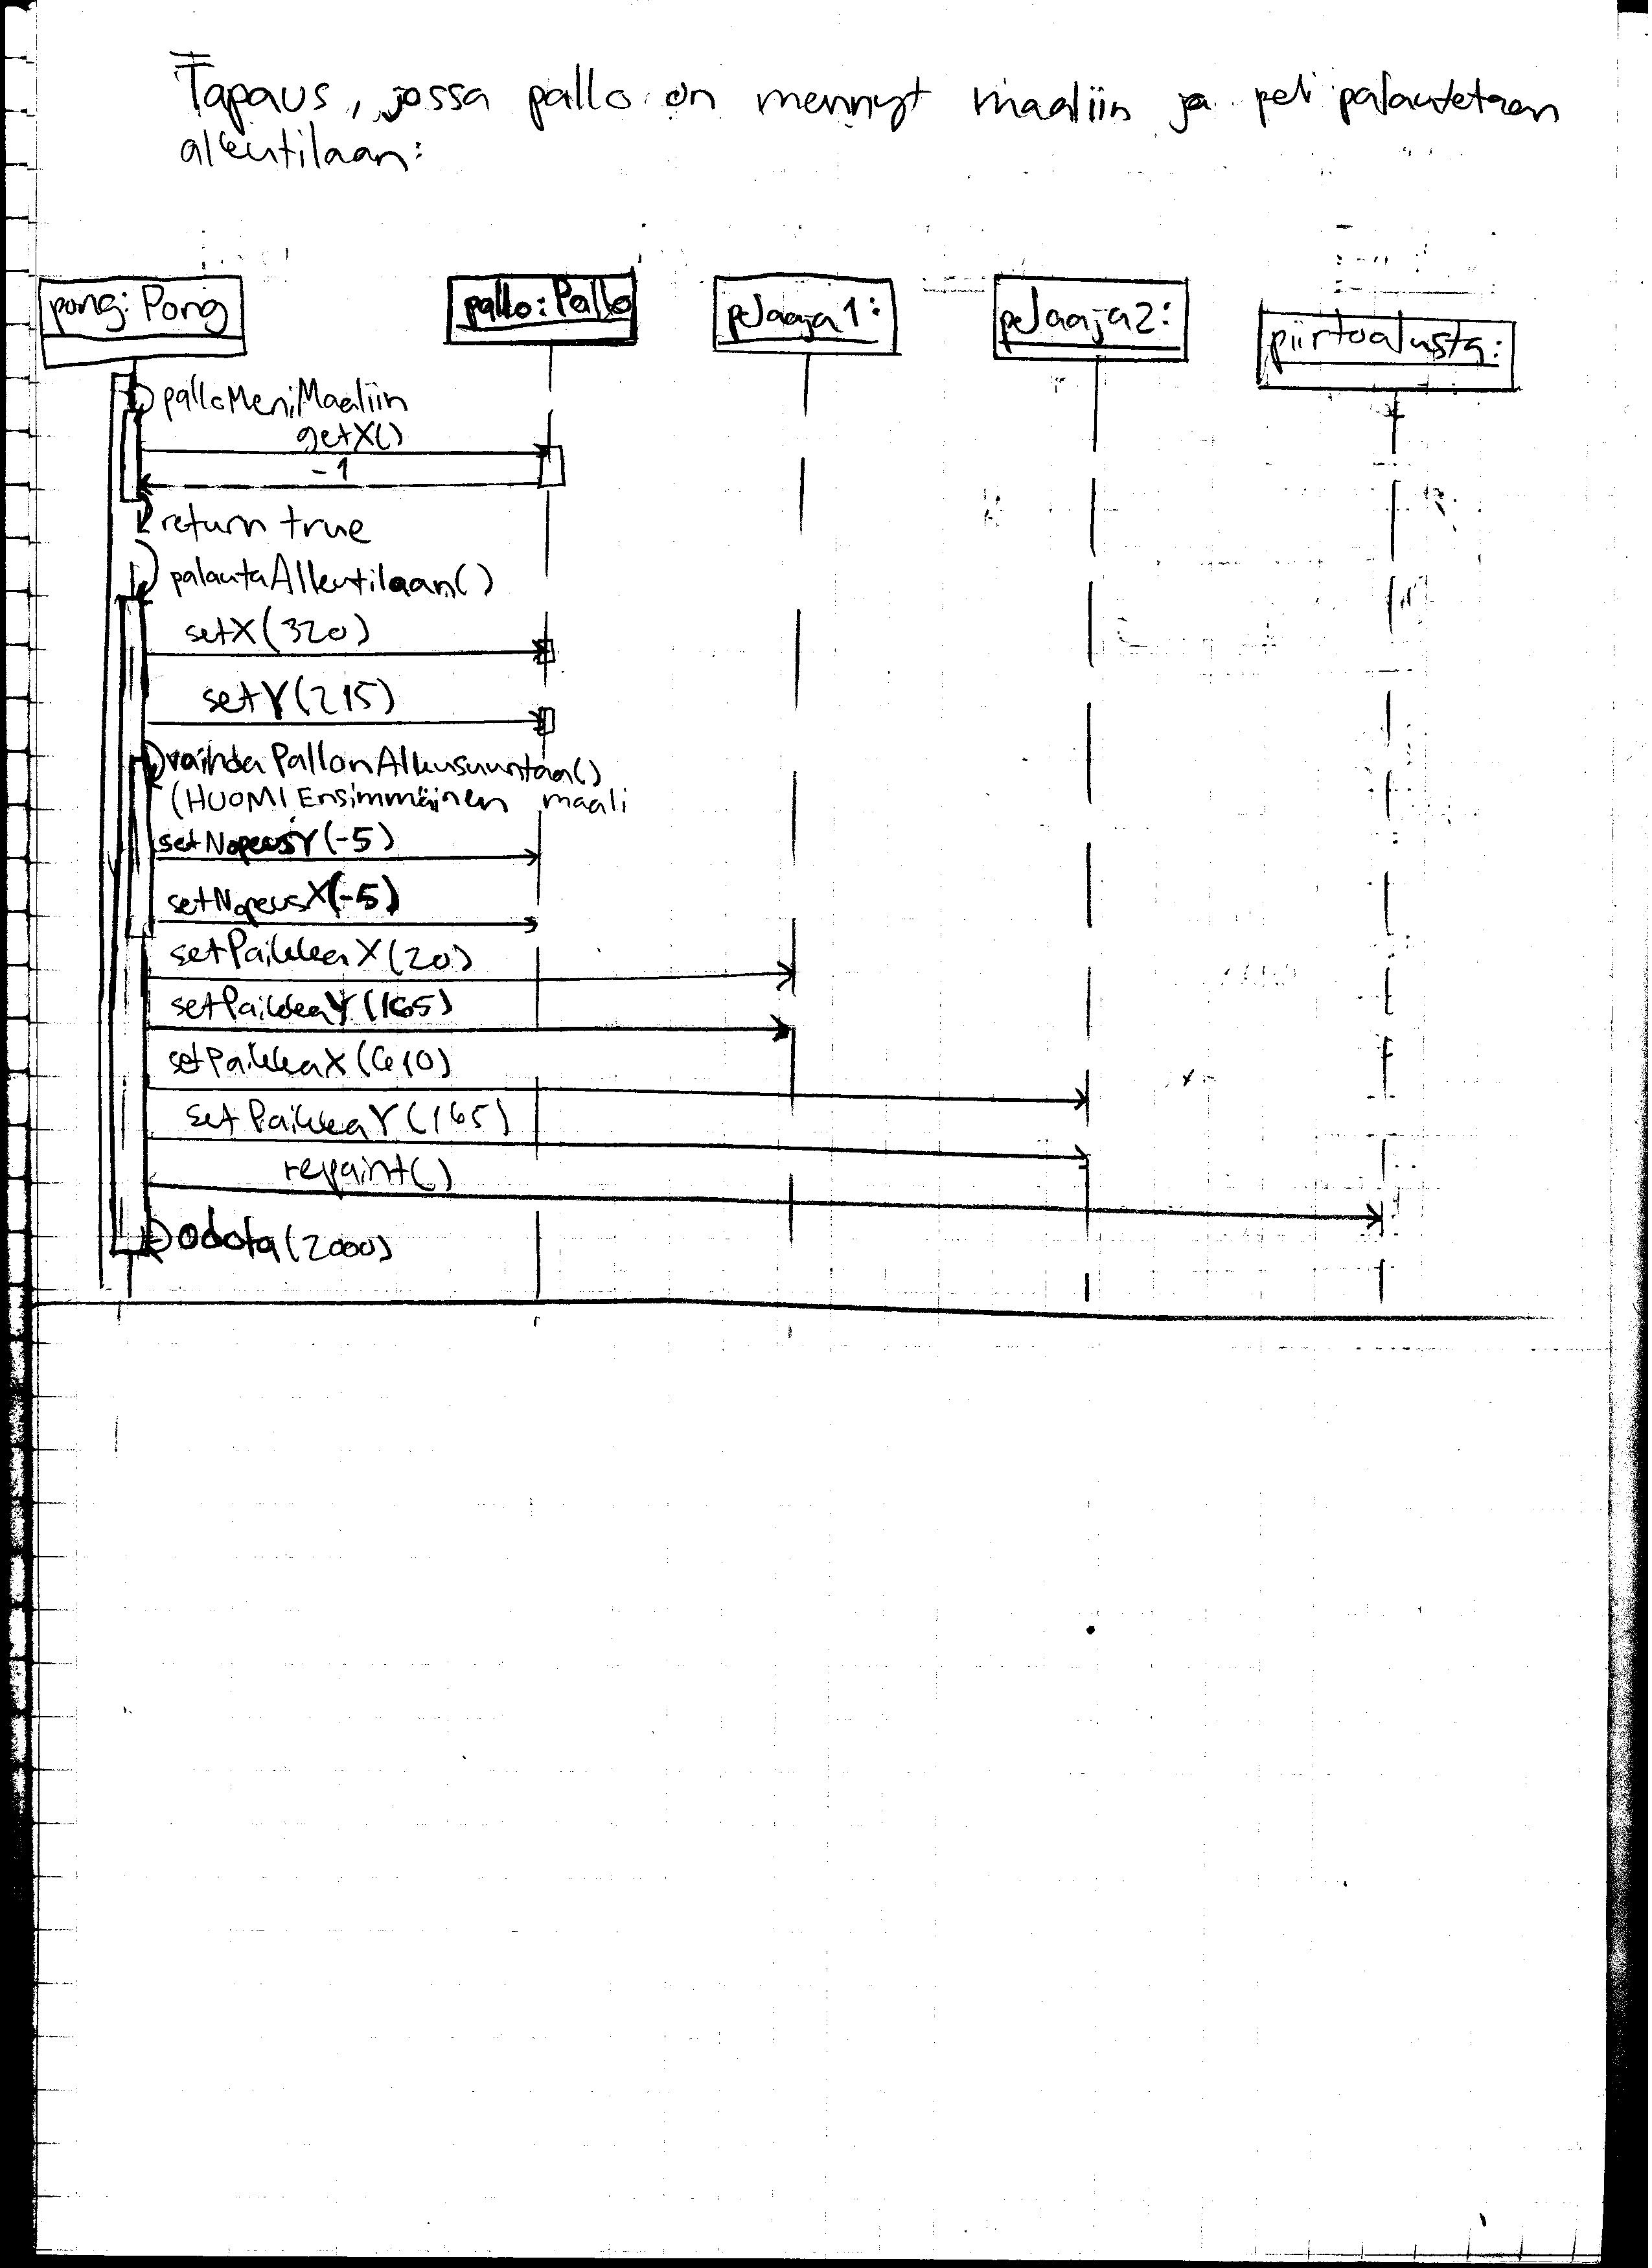 Tapaus, jossa pallo on mennyt maaliin ja peli palautetaan
alkutilaan:
pong: Pong
pallo: Pallo
pelaaja1:
pelaaja2:
piirtoalusta:
palloMeniMaaliin
getX()
-1
return true
palautaAlkutilaan()
setX(320)
setY(215)
vaihdaPallonAlkusuuntaa()
(HUOM! Ensimmäinen maali
setNopeusY(-5)
setNopeusX(-5)
setPaikkaX(20)
setPaikkaY(165)
setPaikkaX(610)
setPaikkaY(165)
repaint()
odota(2000)